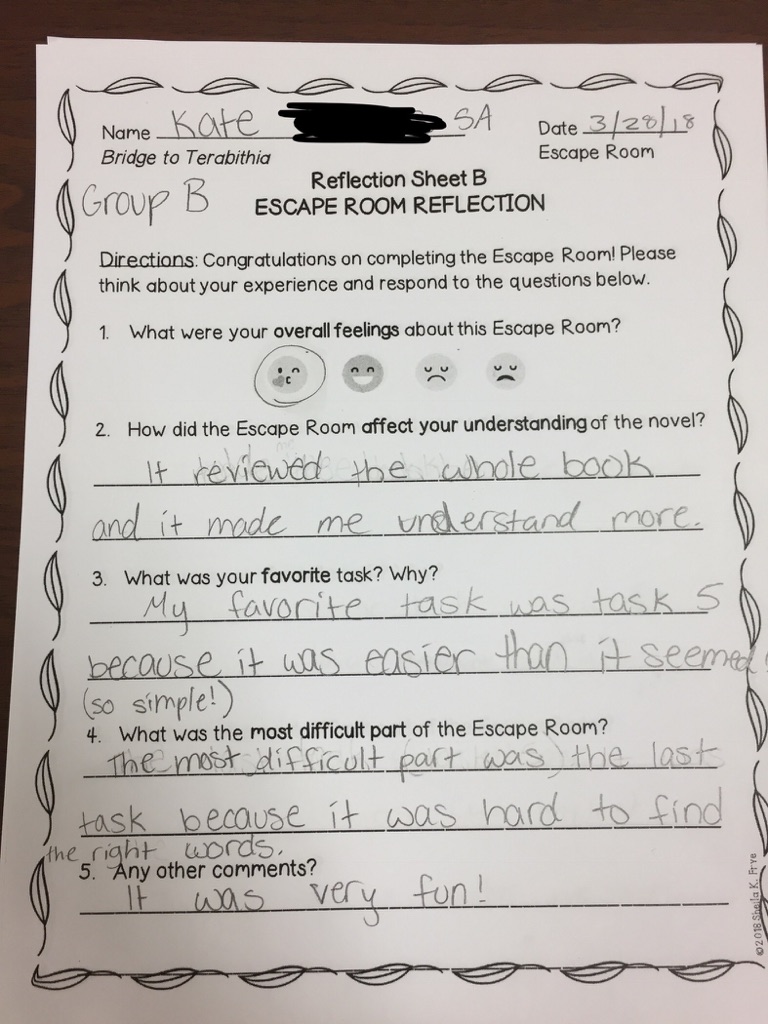 Name Kate SA Date 3/28/18
Bridge to Terabithia Escape Room
Group B
Reflection Sheet B
ESCAPE ROOM REFLECTION
Directions: Congratulations on completing the Escape Room! Please
think about your experience and respond to the questions below.
1. What were your overall feelings about this Escape Room?
2. How did the Escape Room affect your understanding of the novel?
It reviewed the whole book
and it made me understand more.
3. What was your favorite task? Why?
My favorite task was task 5
because it was easier than it seemed
(so simple!)
4. What was the most difficult part of the Escape Room?
The most difficult part was the last
task because it was hard to find
the right words.
5. Any other comments?
It was very fun!
©2018 Sheila K. Frye